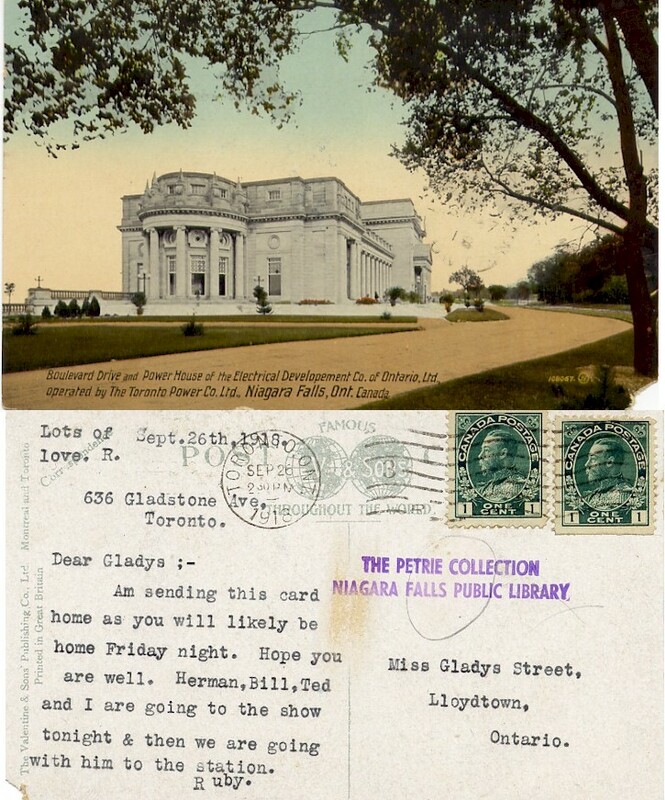 Boulevard Drive and Power House of the Electrical Developement Co. of Ontario, Ltd.,
operated by The Toronto Power Co. Ltd., Niagara Falls, Ont. Canada
108067.
Lots of
love, R.
Sept.26th,1918.
Correspondence
636 Gladstone Ave,
Toronto.
Dear Gladys ;-
Am sending this card
home as you will likely be
home Friday night. Hope you
are well. Herman,Bill,Ted
and I are going to the show
tonight & then we are going
with him to the station.
Ruby.
The Valentine & Sons' Publishing Co., Ltd Montreal and Toronto
Printed in Great Britain
POST
FAMOUS
THROUGHOUT THE WORLD
TORONTO, ONT.
SEP 26
2 30 PM
1918
CANADA POSTAGE
1 ONE CENT 1
CANADA POSTAGE
1 ONE CENT 1
THE PETRIE COLLECTION
NIAGARA FALLS PUBLIC LIBRARY
Miss Gladys Street,
Lloydtown,
Ontario.